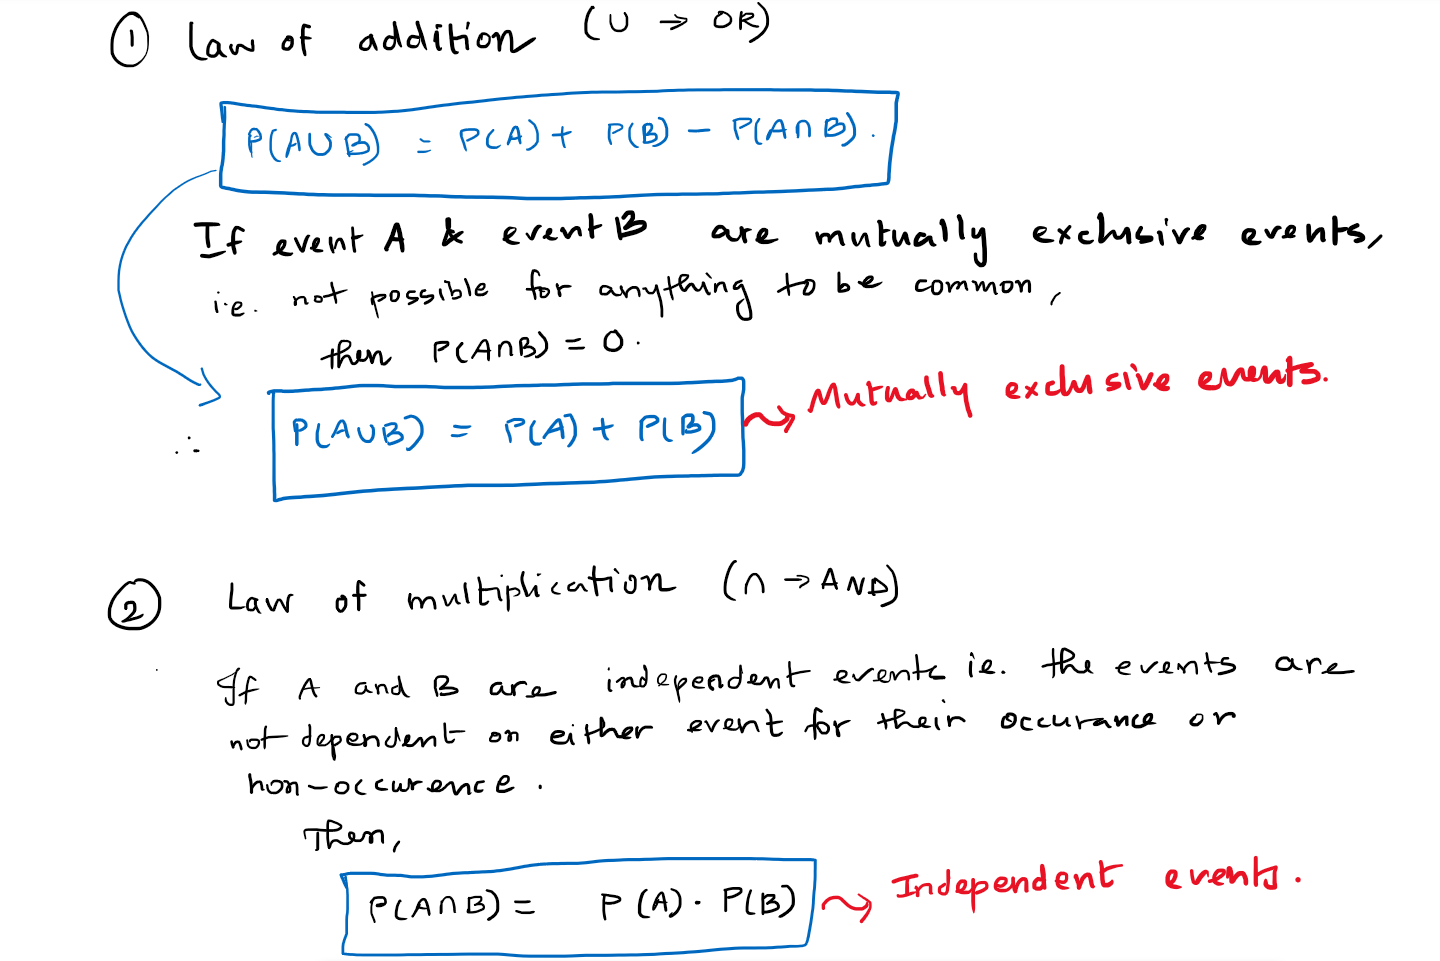 ① Law of addition (∪ → OR)
P(A∪B) = P(A) + P(B) − P(A∩B).
If event A & event B are mutually exclusive events,
i.e. not possible for anything to be common,
then P(A∩B) = 0.
∴ P(A∪B) = P(A) + P(B) → Mutually exclusive events.
② Law of multiplication (∩ → AND)
If A and B are independent events ie. the events are
not dependent on either event for their occurance or
non-occurence.
Then,
P(A∩B) = P(A) · P(B) → Independent events.